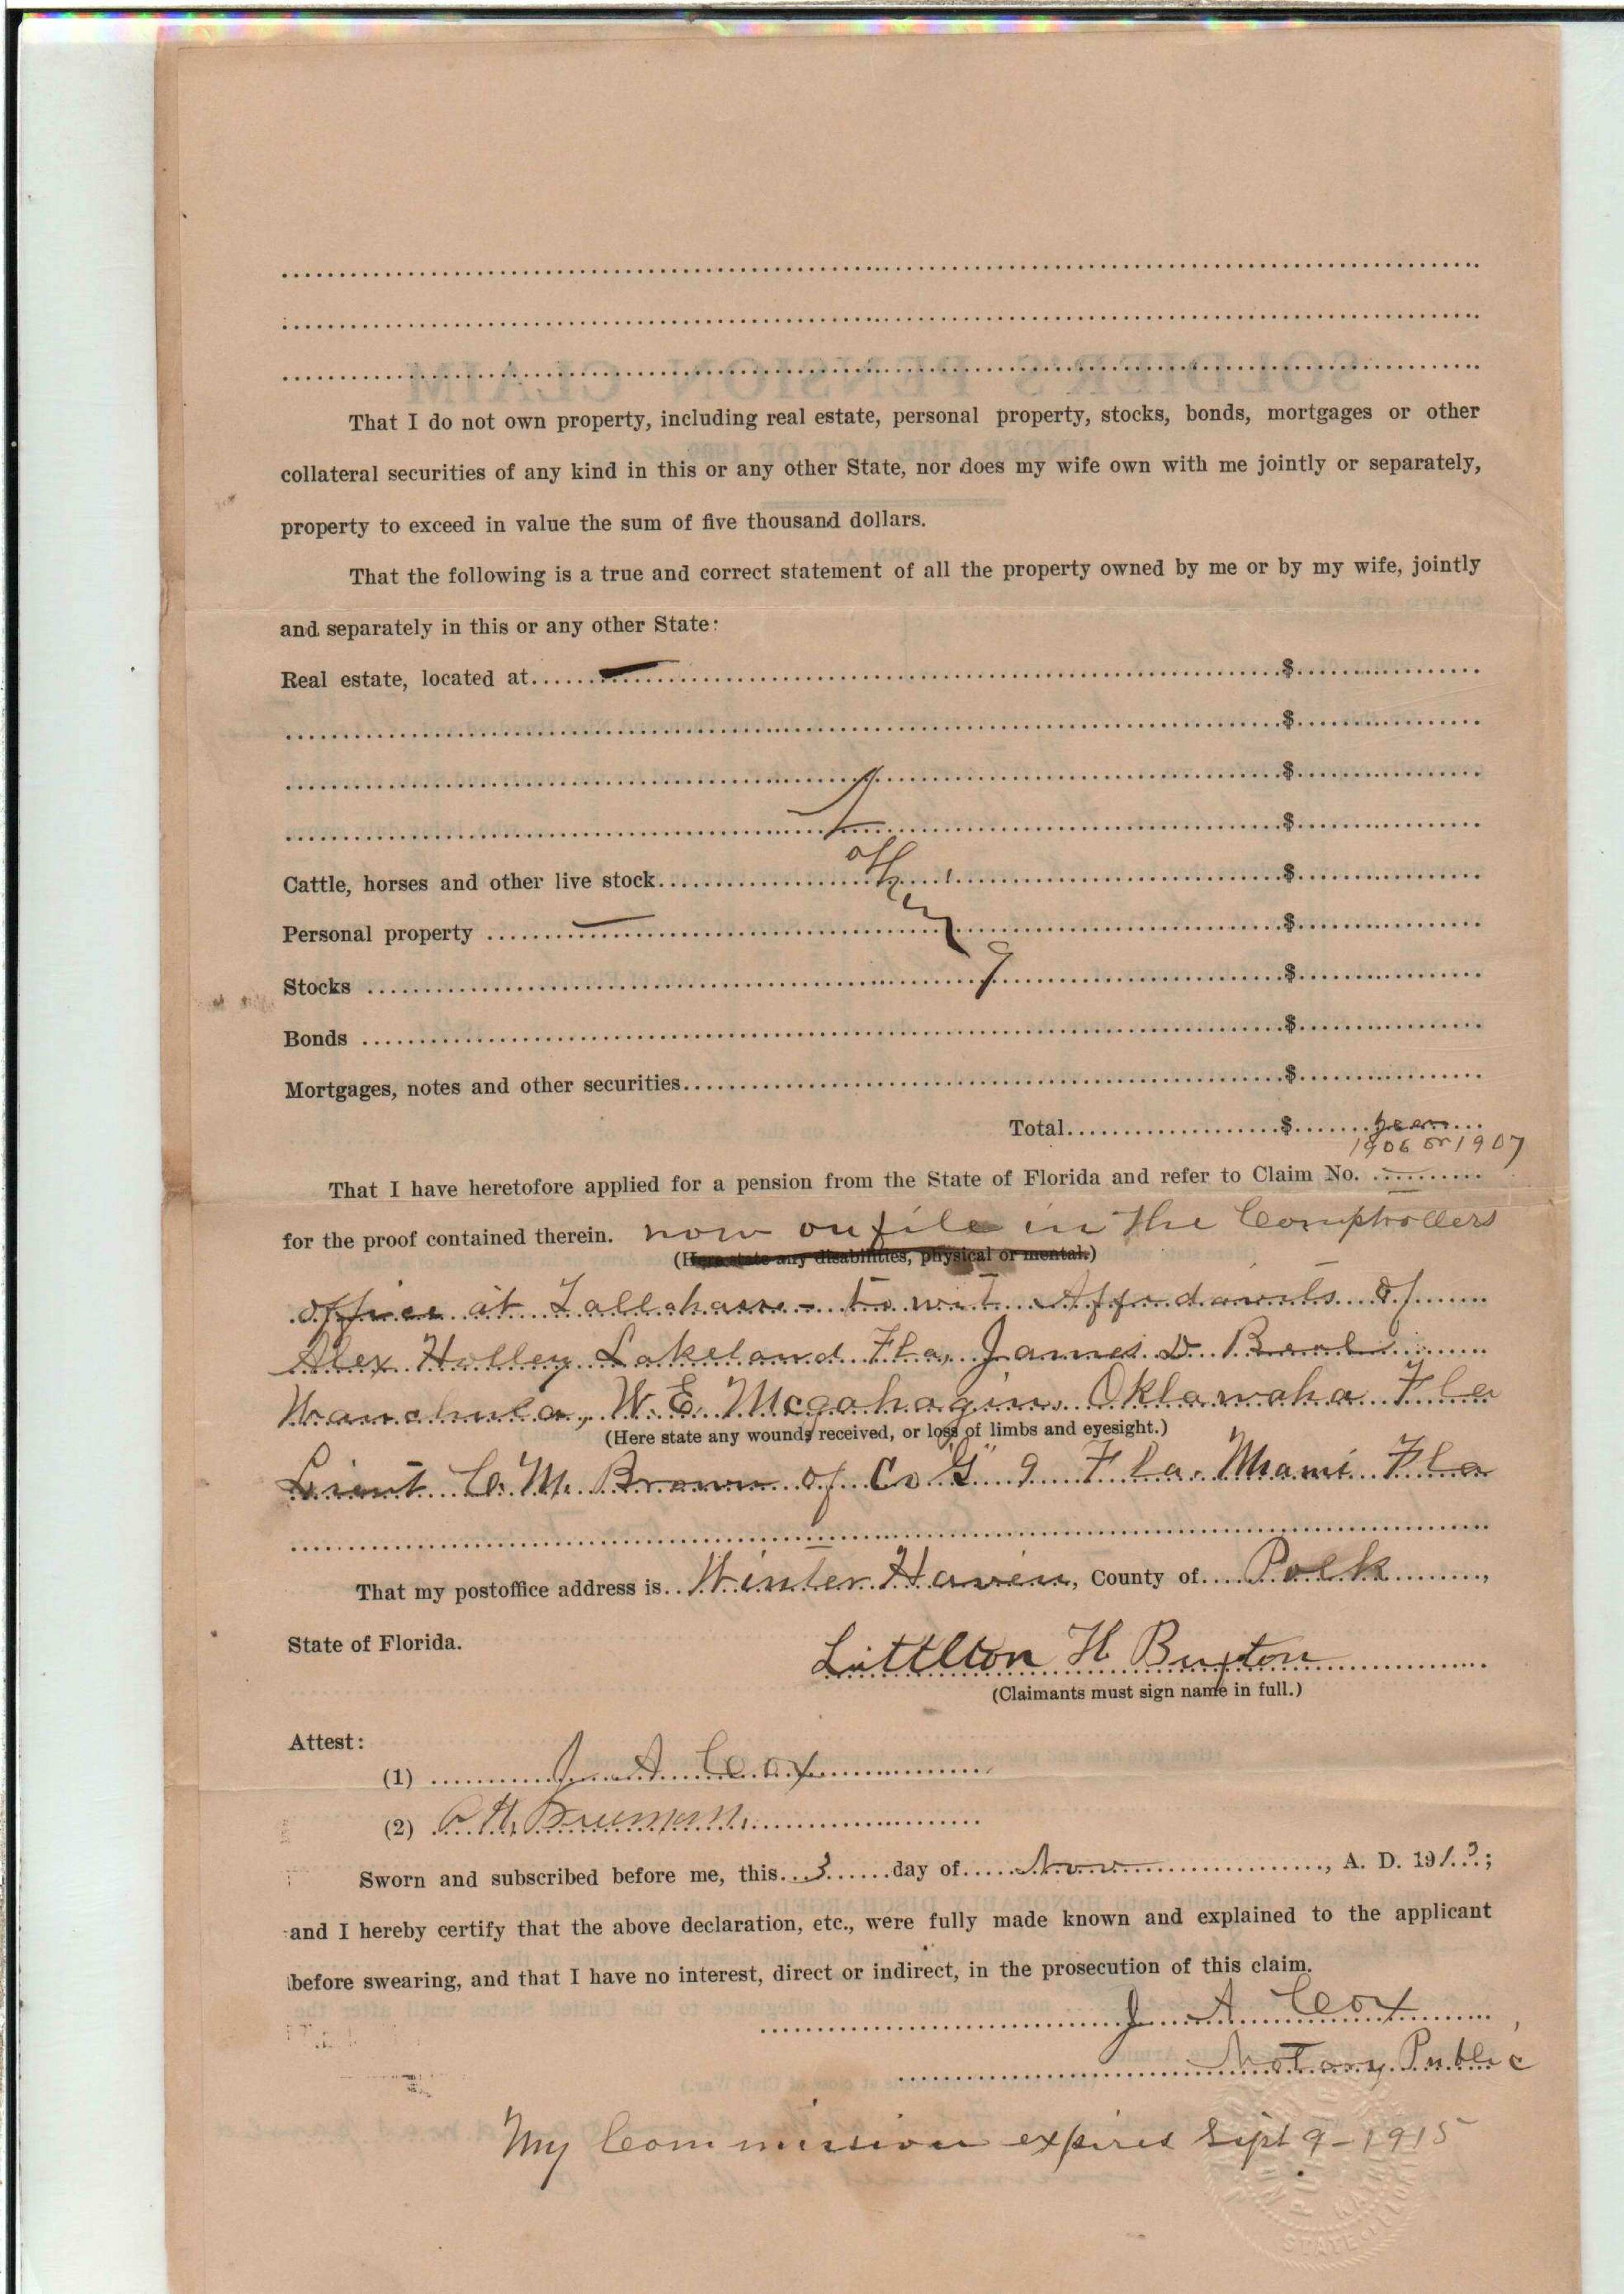 That I do not own property, including real estate, personal property, stocks, bonds, mortgages or other
collateral securities of any kind in this or any other State, nor does my wife own with me jointly or separately,
property to exceed in value the sum of five thousand dollars.
That the following is a true and correct statement of all the property owned by me or by my wife, jointly
and separately in this or any other State:
Real estate, located at $
$
$
$
Cattle, horses and other live stock $
Personal property $
Stocks $
Bonds $
Mortgages, notes and other securities $
Total $
year
1906 or 1907
That I have heretofore applied for a pension from the State of Florida and refer to Claim No.
for the proof contained therein. now on file in the Comptrollers
(Here state any disabilities, physical or mental.)
office at Tallahasse - to wit Affidavits of
Alex Holley Lakeland Fla, James D. Beal
Wauchula, W. E. Mcgahagin, Oklawaha Fla
(Here state any wounds received, or loss of limbs and eyesight.)
Lieut C. M. Brown of Co "G" 9 Fla. Miami Fla
That my postoffice address is Winter Haven, County of Polk,
State of Florida.
Littlton H Buxton
(Claimants must sign name in full.)
Attest:
(1) J. A. Cox
(2)
Sworn and subscribed before me, this 3 day of Nov, A. D. 191;
and I hereby certify that the above declaration, etc., were fully made known and explained to the applicant
before swearing, and that I have no interest, direct or indirect, in the prosecution of this claim.
J. A. Cox,
Notary Public
My Commission expires Sept 9-1915